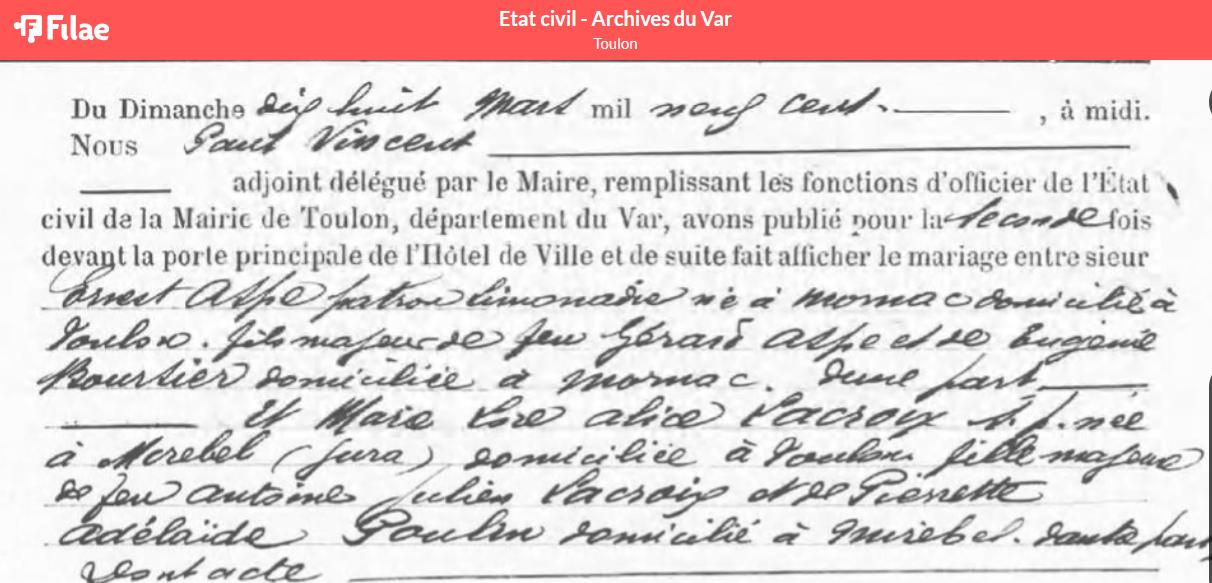 Filae
Etat civil - Archives du Var
Toulon
Du Dimanche dix huit Mars mil neuf cent. , à midi.
Nous Paul Vincent
adjoint délégué par le Maire, remplissant les fonctions d'officier de l'État
civil de la Mairie de Toulon, département du Var, avons publié pour la seconde fois
devant la porte principale de l'Hôtel de Ville et de suite fait afficher le mariage entre sieur
Ernest Aspe patron limonadier né à Mornac domicilié à
Toulon. fils majeur de feu Gérard Aspe et de Eugénie
Boursier domiciliée à Mornac. d'une part
Et Marie alice Lacroix s. p. née
à Mirebel (Jura) domiciliée à Toulon. fille majeure
de feu antoine Julien Lacroix et de Pierrette
adélaïde Poulin domicilié à Mirebel. d'autre part
Dont acte